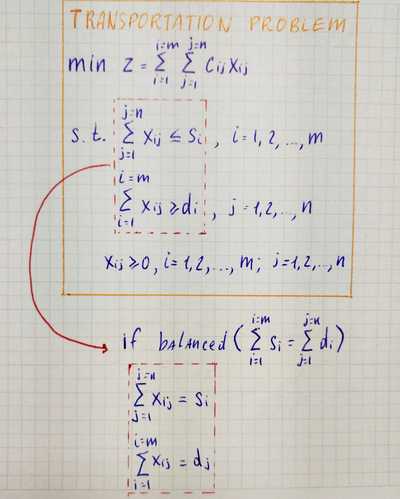 TRANSPORTATION PROBLEM
min z = ∑_{i=1}^{i=m} ∑_{j=1}^{j=n} Cij xij
s.t. ∑_{j=1}^{j=n} xij ≤ si , i=1,2,...,m
∑_{i=1}^{i=m} xij ≥ di , j=1,2,...,n
xij ≥ 0, i=1,2,...,m; j=1,2,...,n
if balanced (∑_{i=1}^{i=m} si = ∑_{j=1}^{j=n} di)
∑_{j=1}^{j=n} xij = si
∑_{i=1}^{i=m} xij = dj